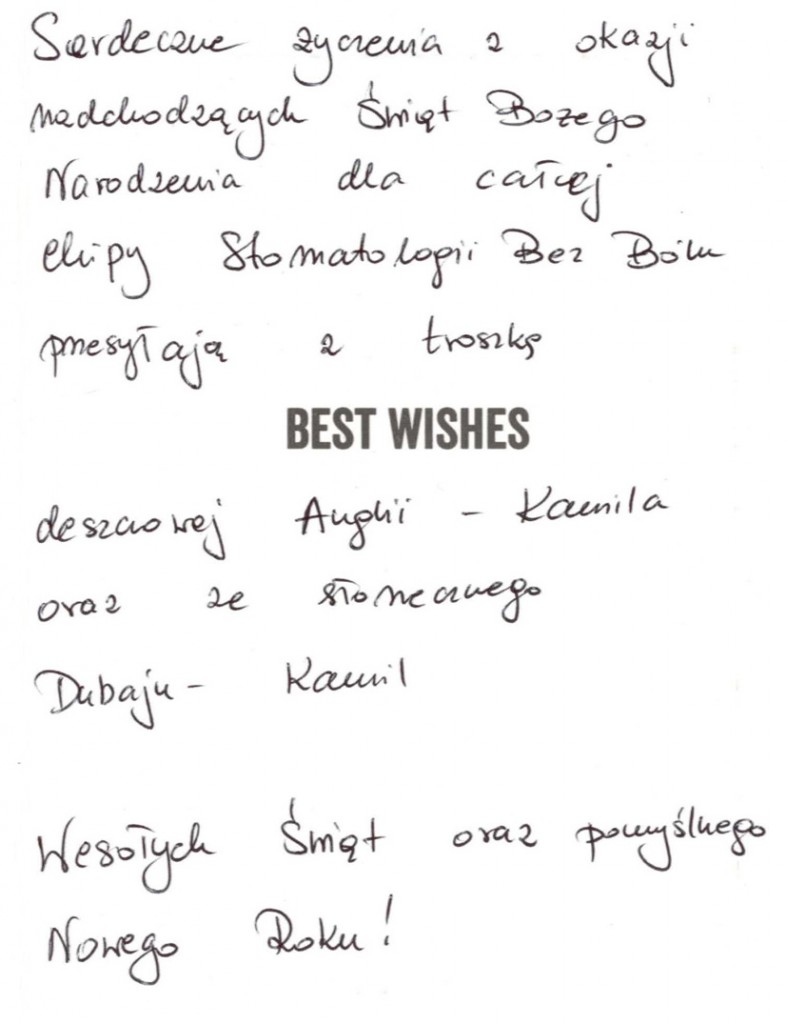 Serdeczne życzenia z okazji
nadchodzących Świąt Bożego
Narodzenia dla całej
ekipy Stomatologii Bez Bólu
przesyłają z troszkę
BEST WISHES
deszczowej Anglii - Kamila
oraz ze słonecznego
Dubaju - Kamil
Wesołych Świąt oraz pomyślnego
Nowego Roku!